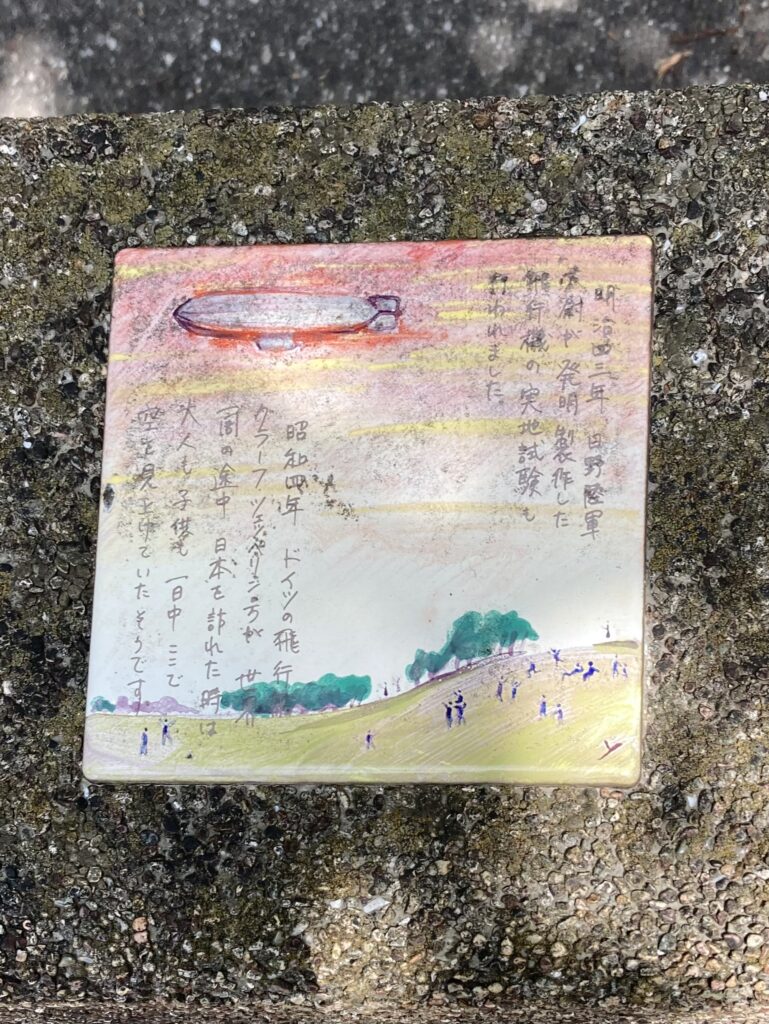 明治四三年 日野陸軍
大尉が発明 製作した
飛行機の実地試験も
行われました。
昭和四年 ドイツの飛行
グラーフツェッペリン号が 世界
一周の途中 日本を訪れた時は
大人も子供も 一日中 ここで
空を見上げていたそうです
Y